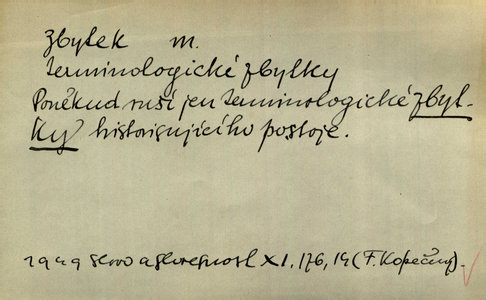 zbytek m.
terminologické zbytky
Poněkud ruší jen terminologické zbyt-
ky historisujícího postoje.
1949 Slovo a slovesnost XI, 176, 14 (F. Kopečný).